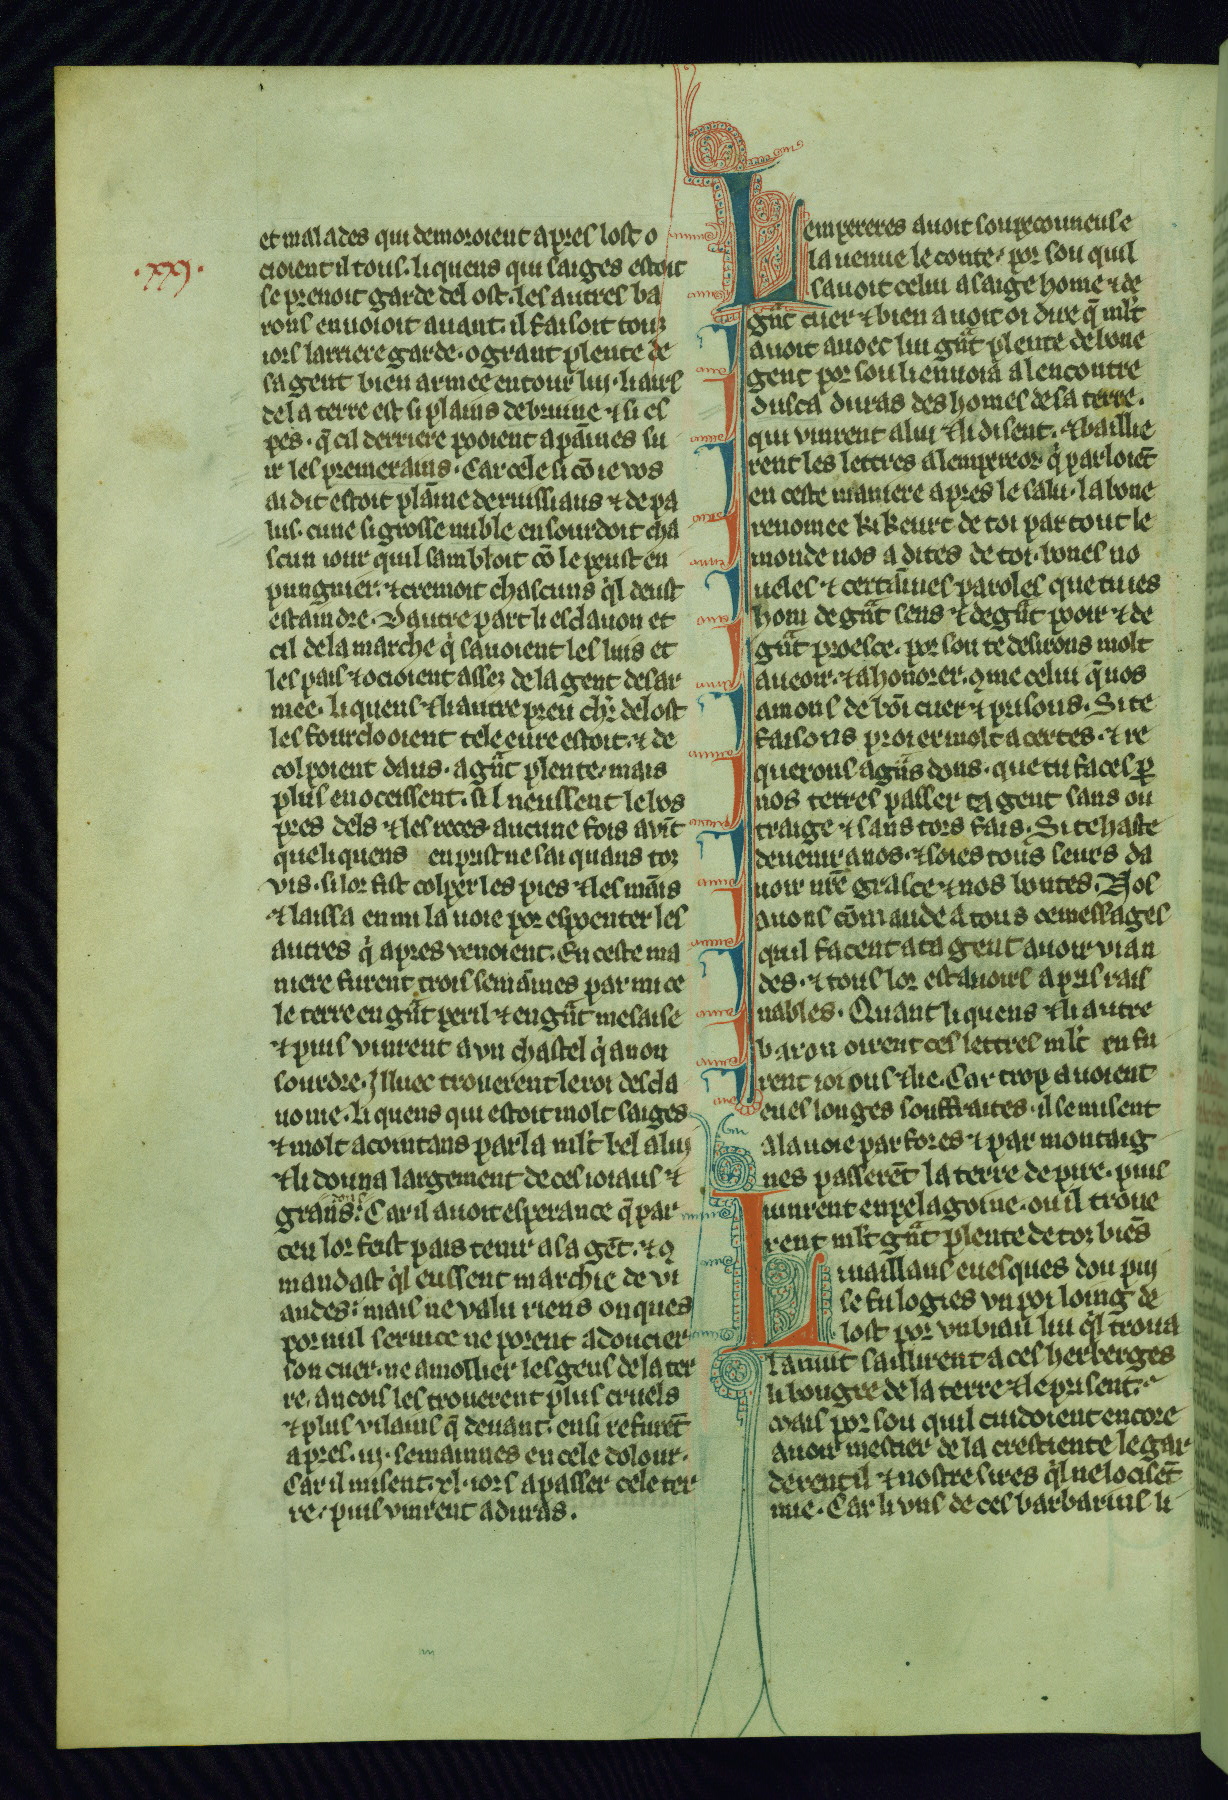 .xxj.
et malades qui demoroient apres lost o
cioient il tous. li quens qui saiges estoit
se prenoit garde del ost. les autres ba
rons enuoioit auant. il faisoit touz
iors larriere garde. o grant plente de
sa gent bien armee entour lui. li airs
de la terre est si plains de bruine ⁊ si es
pes. q̄ cil derriere pooient a pāines su
ir les premerains. Car cele si cō ie vos
ai dit estoit plāine de ruissiaus ⁊ de pa
lus. cune si grosse nuble en sourdoit cha
scun iour quil sambloit cō le peust en
pungnier. ⁊ cremoit chascuns q̓l deust
estaindre. Dautre part li esclauon et
cil de la marche q̓ sauoient les luis et
les pais ⁊ ocioient assez de la gent desar
mee. li quens ⁊ li autre preu chr̄ del ost
les fourclooient tele eure estoit. ⁊ de
colpoient daus. a gūt plente. mais
plus en oceissent. sil neussent le bos
pres dels ⁊ les reces aucune fois auīt
que li quens en prist ne sai quans tor
vis. si lor fist colper les pies ⁊ les māis
⁊ laissa en mi la uoie por espoenter les
autres q̓ apres venoient. En ceste ma
niere furent trois semāines par mi ce
le terre en gūt peril ⁊ en gūt mesaise
⁊ puis vinrent a vn chastel q̓ a non
sourdre. Illuec trouerent le roi descla
uonie. li quens qui estoit molt saiges
⁊ molt acointans parla mlt̓ bel a lui
⁊ li donna largement de ces ioiaus ⁊
grans dons. Car il auoit esperance q̄ par
ceu lor feist pais tenir a sa gēt. ⁊ 9
mandast q̓l eussent marchie de vi
andes. mais ne valu riens onques
por nul seruice ne porent adoucier
son cuer. ne amollier les gens de la ter
re. ancois les trouerent plus cruels
⁊ plus vilains q̄ deuant. ensi refurēt
apres .iij. semainnes en cele dolour.
Car il misent .xl. iors a passer cele ter
re. puis vinrent a duras.
Lempereres auoit soupeconneuse
la uenue le conte. por sou quil
sauoit celui a saige home ⁊ de
gūt cuer ⁊ bien auoit oi dire q̄ mlt̓
auoit auoec lui gūt plente de bone
gent por sou li enuoia al encontre
dusca duras des homes de sa terre.
qui vinrent a lui ⁊ li disent. ⁊ baillie
rent les lettres al empereor q̓ parloiēt
en ceste maniere apres le salu. la bone
renomee ki keurt de toi par tout le
monde nos a dites de toi. bones no
ueles ⁊ certāines paroles que tu ies
hom de gūt sens ⁊ de gūt pooir ⁊ de
gūt proesce. por sou te desirons molt
a ueoir. ⁊ a honorer. 9me celui q̄ nos
amons de bōi cuer ⁊ prisons. Si te
faisons proier molt a certes. ⁊ re
querons a gūs dons. que tu faces p̱
nos terres passer ta gent sans ou
traige ⁊ sans tors fais. Si te haste
de uenir a nos. ⁊ soies tous seurs da
uoir nr̄e grasce ⁊ nos bontes. Nos
auons cōmande a tous ces messages
quil facent a ta gent auoir vian
des. ⁊ tous lor estauoirs a pris rais
nables. Quant li quens ⁊ li autre
baron oirent ces lettres mlt̓ en fu
rent ioious ⁊ lie. Car trop auoient
eues longes souffraites. il se misent
a la uoie par fores ⁊ par montaig
nes passerēt la terre de pire. puis
vinrent en pelagonie. ou il troue
rent mlt̓ gūt plente de toz biēs
Li vaillans euesques dou puj
se fu logies vn poi loing de
lost por vn biau liu q̓l troua
la nuit saillirent a ces herberges
li bougre de la terre ⁊ le prisent.
mais por sou quil cuidoient encore
auoir mestier de la crestiente le gar
derent il ⁊ nostre sires q̓l ne locisēt
mie. Car li vns de ces barbarins li